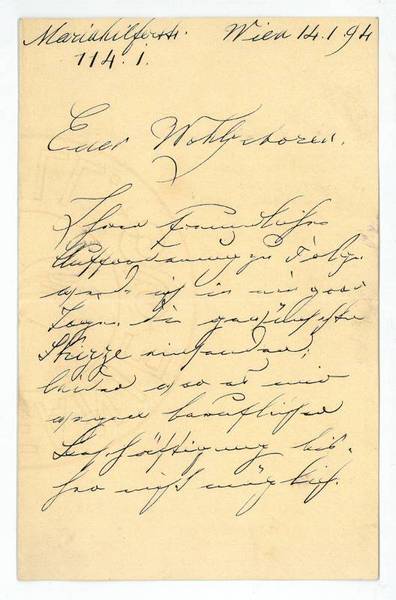 Mariahilferstr. Wien 14.1.94
114. I.
Euer Wohlgeboren.
Ihrer freundlichen
Aufforderung zu Folge
werde ich in einigen
Tagen die gewünschte
Skizze einsenden;
leider war es mir
wegen beruflicher
Beschäftigung bis-
her nicht möglich.